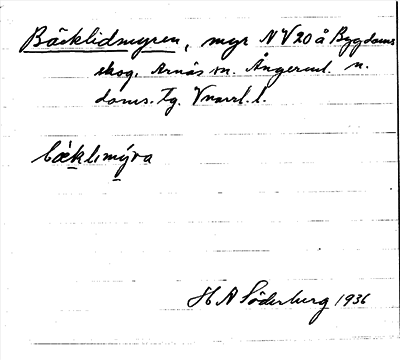 Bäcklidmyren, myr NV 20 å Bygdoms
skog. Arnäs sn. Ångerml. n.
doms. tg. Vnorrl. l.
bæklımýra
H A Söderberg 1936